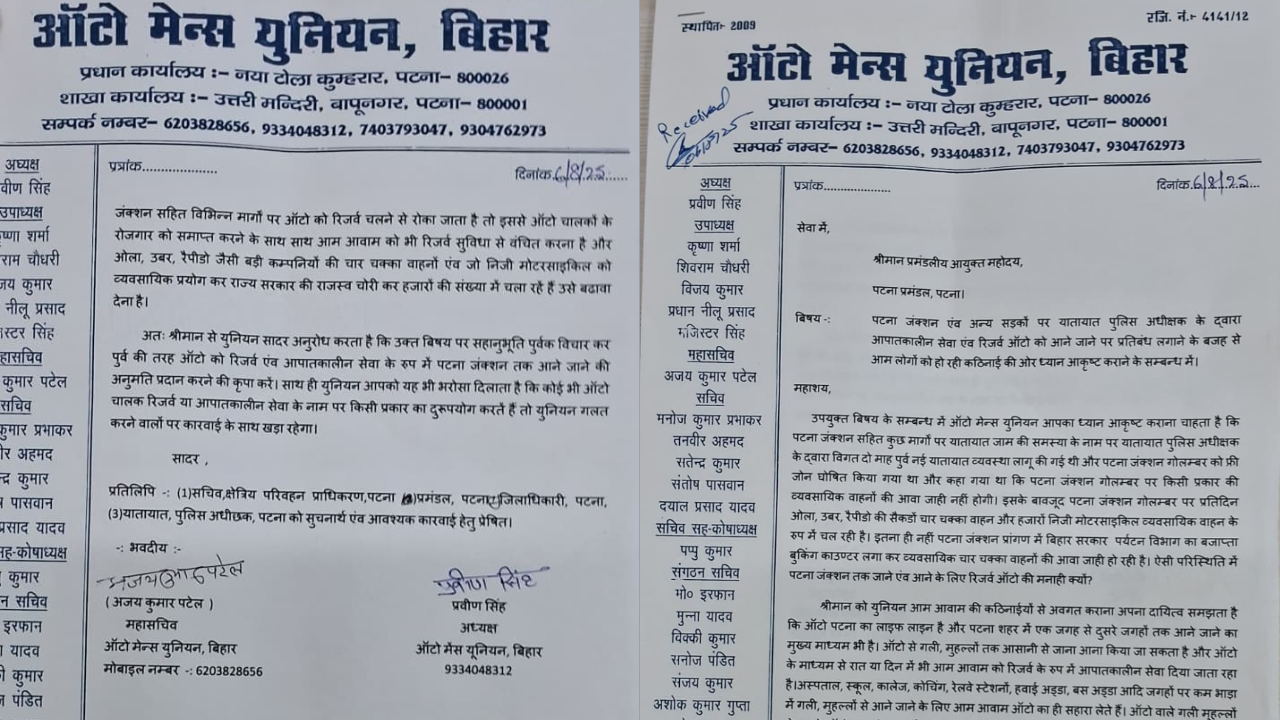 ऑटो मेन्स युनियन, बिहार
प्रधान कार्यालय :- नया टोला कुम्हरार, पटना- 800026
शाखा कार्यालय :- उत्तरी मन्दिरी, बापूनगर, पटना- 800001
सम्पर्क नम्बर- 6203828656, 9334048312, 7403793047, 9304762973
पत्रांक....................
दिनांक 6/8/25......
अध्यक्ष
वीण सिंह
उपाध्यक्ष
ष्णा शर्मा
राम चौधरी
जय कुमार
नीलू प्रसाद
जिस्टर सिंह
हासचिव
कुमार पटेल
सचिव
कुमार प्रभाकर
ीर अहमद
न्द्र कुमार
पासवान
प्रसाद यादव
सह-कोषाध्यक्ष
कुमार
न सचिव
इरफान
यादव
कुमार
पंडित
जंक्शन सहित विभिन्न मार्गों पर ऑटो को रिजर्व चलने से रोका जाता है तो इससे ऑटो चालकों के
रोजगार को समाप्त करने के साथ साथ आम आवाम को भी रिजर्व सुविधा से वंचित करना है और
ओला, उबर, रैपीडो जैसी बड़ी कम्पनियों की चार चक्का वाहनों एंव जो निजी मोटरसाइकिल को
व्यवसायिक प्रयोग कर राज्य सरकार की राजस्व चोरी कर हजारों की संख्या में चला रहे हैं उसे बढावा
देना है।
अतः श्रीमान से युनियन सादर अनुरोध करता है कि उक्त बिषय पर सहानुभूति पुर्वक विचार कर
पुर्व की तरह ऑटो को रिजर्व एंव आपातकालीन सेवा के रुप में पटना जंक्शन तक आने जाने की
अनुमति प्रदान करने की कृपा करें। साथ ही युनियन आपको यह भी भरोसा दिलाता है कि कोई भी ऑटो
चालक रिजर्व या आपातकालीन सेवा के नाम पर किसी प्रकार का दुरूपयोग करतें हैं तो युनियन गलत
करने वालों पर कारवाई के साथ खड़ा रहेगा।
सादर ,
प्रतिलिपि -: (1)सचिव,क्षेत्रिय परिवहन प्राधिकरण,पटना प्रमंडल, पटना जिलाधिकारी, पटना,
(3)यातायात, पुलिस अधीछक, पटना को सुचनार्थ एंव आवश्यक कारवाई हेतु प्रेषित।
-: भवदीय :-
अजय कुमार पटेल
(अजय कुमार पटेल )
महासचिव
ऑटो मेन्स युनियन, बिहार
मोबाइल नम्बर -: 6203828656
प्रवीण सिंह
प्रवीण सिंह
अध्यक्ष
ऑटो मेंस यूनियन, बिहार
9334048312
स्थापित- 2009
रजि. नं.- 4141/12
ऑटो मेन्स युनियन, बिहार
प्रधान कार्यालय :- नया टोला कुम्हरार, पटना- 800026
शाखा कार्यालय :- उत्तरी मन्दिरी, बापूनगर, पटना- 800001
सम्पर्क नम्बर- 6203828656, 9334048312, 7403793047, 9304762973
Received
पत्रांक....................
दिनांक 6/8/25...
अध्यक्ष
प्रवीण सिंह
उपाध्यक्ष
कृष्णा शर्मा
शिवराम चौधरी
विजय कुमार
प्रधान नीलू प्रसाद
मजिस्टर सिंह
महासचिव
अजय कुमार पटेल
सचिव
मनोज कुमार प्रभाकर
तनवीर अहमद
सतेन्द्र कुमार
संतोष पासवान
दयाल प्रसाद यादव
सचिव सह-कोषाध्यक्ष
पप्पु कुमार
संगठन सचिव
मो० इरफान
मुन्ना यादव
विक्की कुमार
सनोज पंडित
संजय कुमार
अशोक कुमार गुप्ता
सेवा में,
श्रीमान प्रमंडलीय आयुक्त महोदय,
पटना प्रमंडल, पटना।
बिषय -: पटना जंक्शन एंव अन्य सड़कों पर यातायात पुलिस अधीक्षक के द्वारा
आपातकालीन सेवा एंव रिजर्व ऑटो को आने जाने पर प्रतिबंध लगाने के बजह से
आम लोगों को हो रही कठिनाई की ओर ध्यान आकृष्ट कराने के सम्बन्ध में।
महाशय,
उपयुक्त बिषय के सम्बन्ध में ऑटो मेन्स युनियन आपका ध्यान आकृष्ट कराना चाहता है कि
पटना जंक्शन सहित कुछ मार्गों पर यातायात जाम की समस्या के नाम पर यातायात पुलिस अधीक्षक
के द्वारा विगत दो माह पुर्व नई यातायात व्यवस्था लागू की गई थी और पटना जंक्शन गोलम्बर को फ्री
जोन घोषित किया गया था और कहा गया था कि पटना जंक्शन गोलम्बर पर किसी प्रकार की
व्यवसायिक वाहनों की आवा जाही नहीं होगी। इसके बावजूद पटना जंक्शन गोलम्बर पर प्रतिदिन
ओला, उबर, रैपीडो की सैकडों चार चक्का वाहन और हजारों निजी मोटरसाइकिल व्यवसायिक वाहन के
रुप में चल रही है। इतना ही नहीं पटना जंक्शन प्रांगण में बिहार सरकार पर्यटन विभाग का बजाप्ता
बुकिंग काउण्टर लगा कर व्यवसायिक चार चक्का वाहनों की आवा जाही हो रही है। ऐसी परिस्थिति में
पटना जंक्शन तक जाने एंव आने के लिए रिजर्व ऑटो की मनाही क्यों?
श्रीमान को युनियन आम आवाम की कठिनाईयों से अवगत कराना अपना दायित्व समझता है
कि ऑटो पटना का लाइफ लाइन है और पटना शहर में एक जगह से दुसरे जगहों तक आने जाने का
मुख्य माध्यम भी है। ऑटो से गली, मुहल्लों तक आसानी से जाना आना किया जा सकता है और ऑटो
के माध्यम से रात या दिन में भी आम आवाम को रिजर्व के रुप में आपातकालीन सेवा दिया जाता रहा
है।अस्पताल, स्कूल, कालेज, कोचिंग, रेलवे स्टेशनों, हवाई अड्डा, बस अड्डा आदि जगहों पर कम भाड़ा
में गली, मुहल्लों से आने जाने के लिए आम आवाम ऑटो का ही सहारा लेते हैं। ऑटो वाले गली मुहल्लों